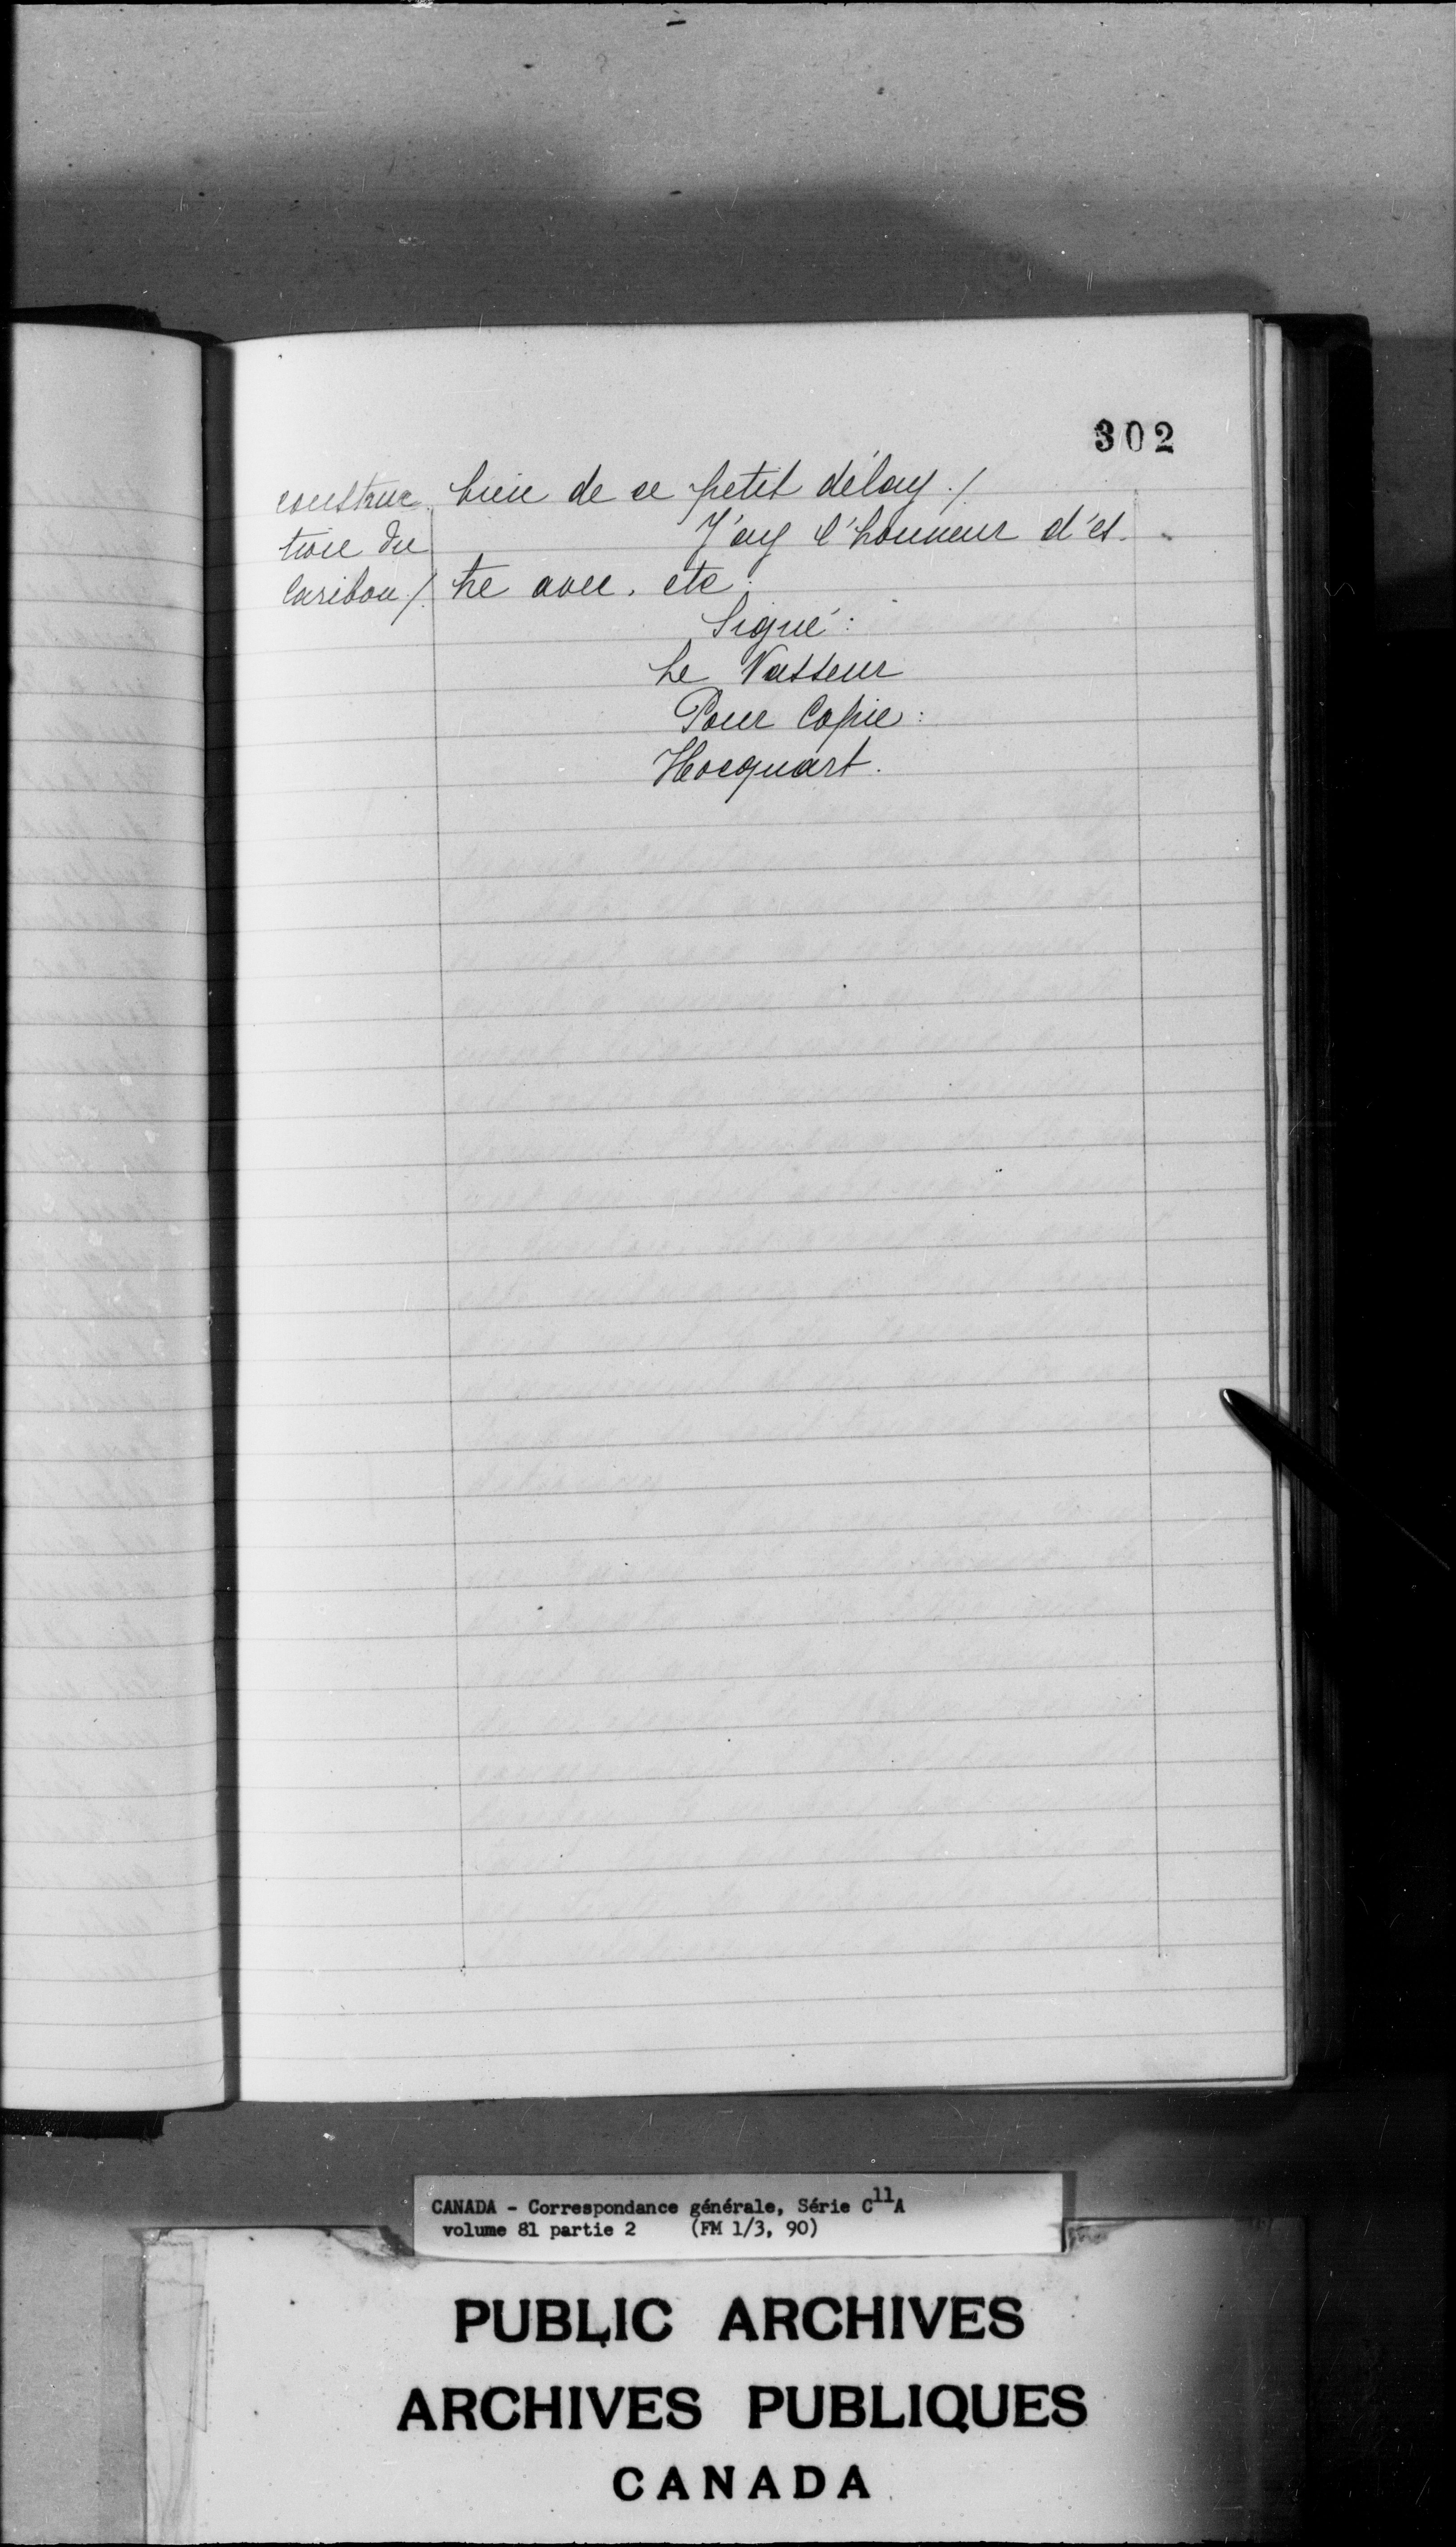 302
construc.
tion du
Caribou /.
bien de ce petit délay ./
J'ay l'honneur d'es-
tre avec. etc.
Signé:
Le Vasseur
Pour Copie:
Hocquart.
CANADA - Correspondance générale, Série C11A
volume 81 partie 2 (FM 1/3, 90)
PUBLIC ARCHIVES
ARCHIVES PUBLIQUES
CANADA